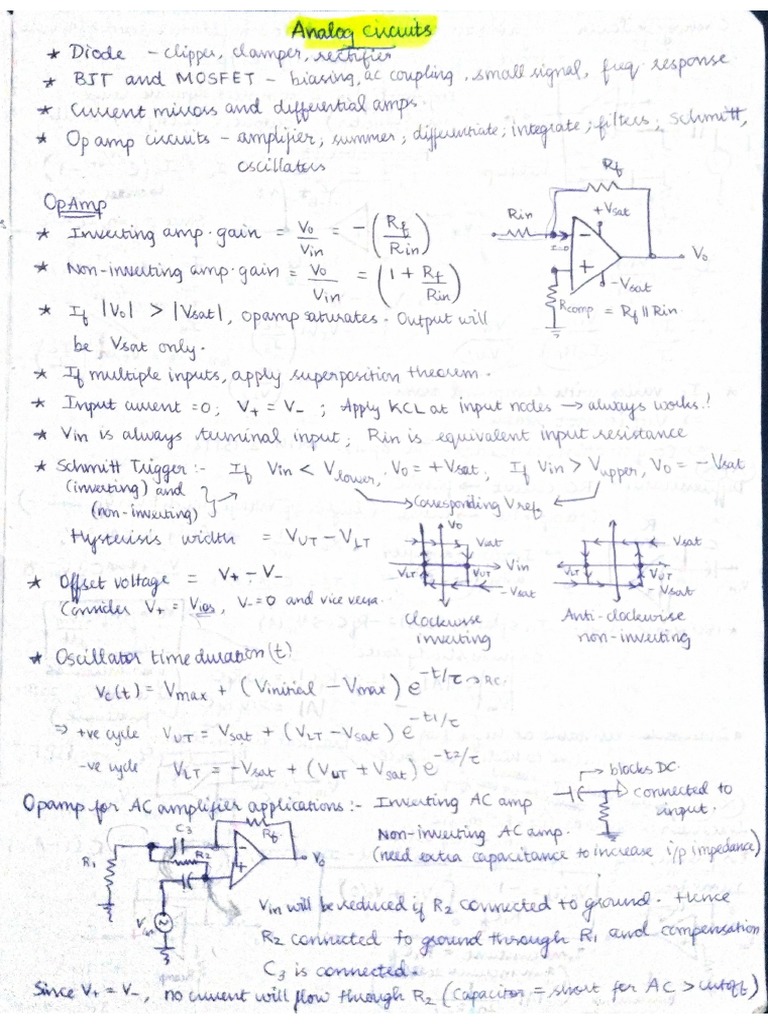 Analog circuits
* Diode - clipper, clamper, rectifier
* BJT and MOSFET - biasing, ac coupling, small signal, freq response
* Current mirrors and differential amps.
* Op amp circuits - amplifier; summer; differentiate; integrate; filters; Schmitt,
oscillators
OpAmp
* Inverting amp. gain = Vo/Vin = -(Rf/Rin)
* Non-inverting amp. gain = Vo/Vin = (1 + Rf/Rin)
* If |Vo| > |Vsat|, opamp saturates. Output will
be Vsat only.
Rf
Rin
+Vsat
I=0
-
+
Vo
-Vsat
Rcomp = Rf || Rin
* If multiple inputs, apply superposition theorem.
* Input current =0; V+ = V- ; Apply KCL at input nodes → always works!
* Vin is always terminal input; Rin is equivalent input resistance
* Schmitt Trigger :- If Vin < Vlower, Vo = +Vsat; If Vin > Vupper, Vo = -Vsat
(inverting) and
(non-inverting)
→ Corresponding Vref
Hysterisis width = VUT - VLT
* Offset voltage = V+ - V-
Consider V+ = Vios, V-=0 and vice versa.
Vo
Vsat
Vin
VLT
VUT
-Vsat
Clockwise
inverting
Vsat
VLT
VUT
-Vsat
Anti-clockwise
non-inverting
* Oscillator time duration (t)
Vc(t) = Vmax + (Vinitial - Vmax) e^-t/τ → RC.
⇒ +ve cycle VUT = Vsat + (VLT - Vsat) e^-t1/τ
-ve cycle VLT = -Vsat + (VUT + Vsat) e^-t2/τ
Opamp for AC amplifier applications :- Inverting AC amp
→ blocks DC.
connected to
input.
Non-inverting AC amp.
(need extra capacitance to increase i/p impedance)
C3
Rf
R2
R1
-
+
Vo
Vin
Vin will be reduced if R2 connected to ground. Hence
R2 connected to ground through R1 and compensation
C3 is connected.
Since V+ = V-, no current will flow through R2 (Capacitor = short for AC > cutoff)